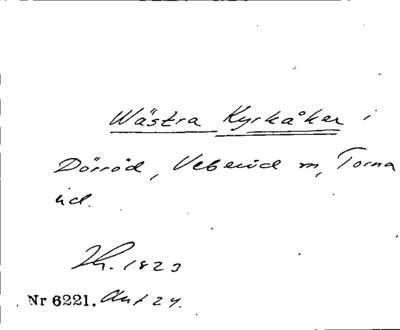 Wästra Kyrkåker i
Dörröd, Veberöd m, Torna
hd.
Zh. 1823
Nr 6221. Akt 24.